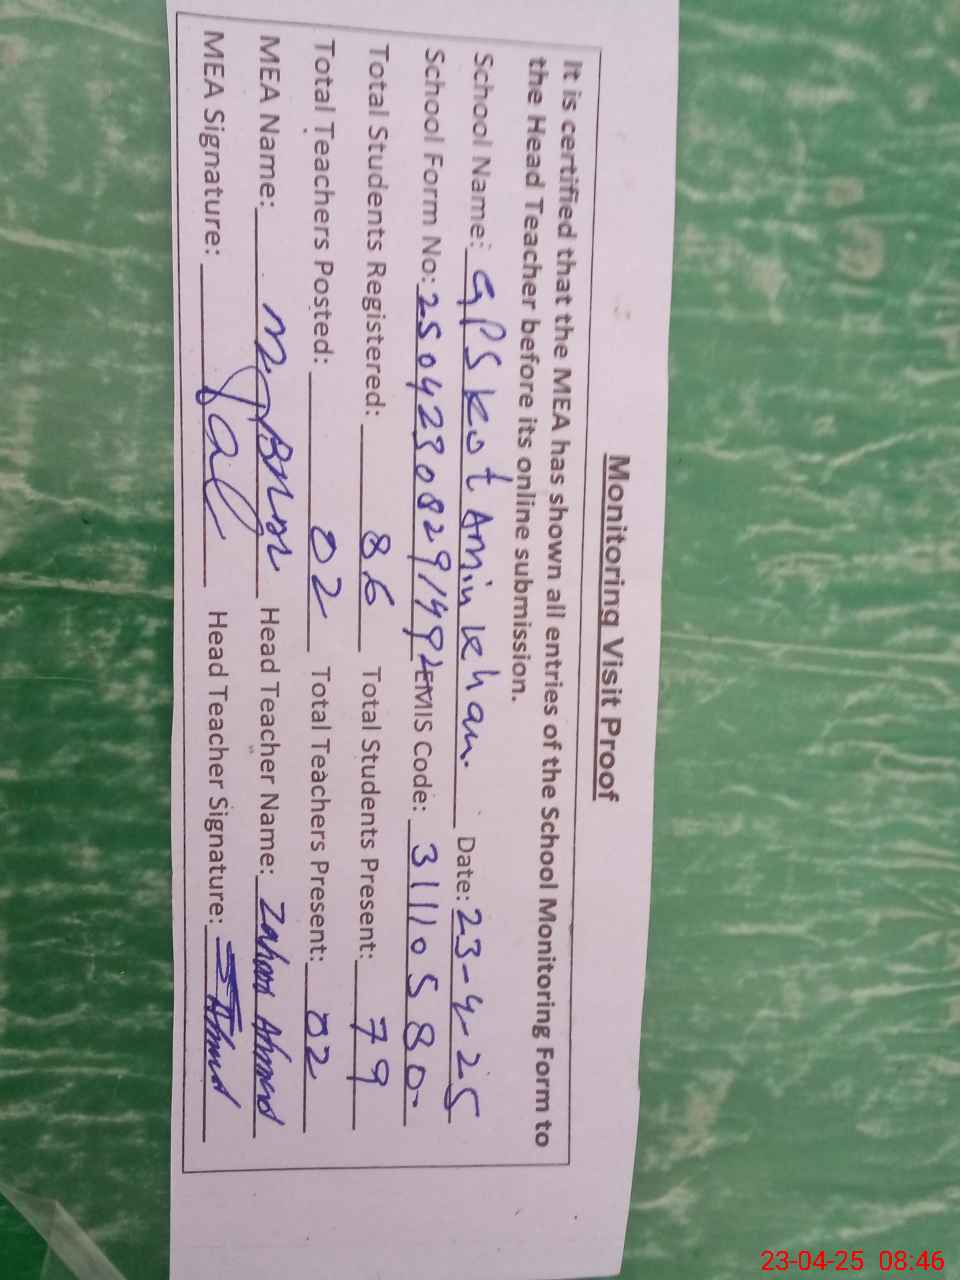 Monitoring Visit Proof
It is certified that the MEA has shown all entries of the School Monitoring Form to
the Head Teacher before its online submission.
School Name: GPS Kot Amin Khan. Date: 23-4-25
School Form No: 25042308291492 EMIS Code: 31110580
Total Students Registered: 86 Total Students Present: 79
Total Teachers Posted: 02 Total Teachers Present: 02
MEA Name: Head Teacher Name: Zaheer Ahmed
MEA Signature: Head Teacher Signature:
23-04-25 08:46